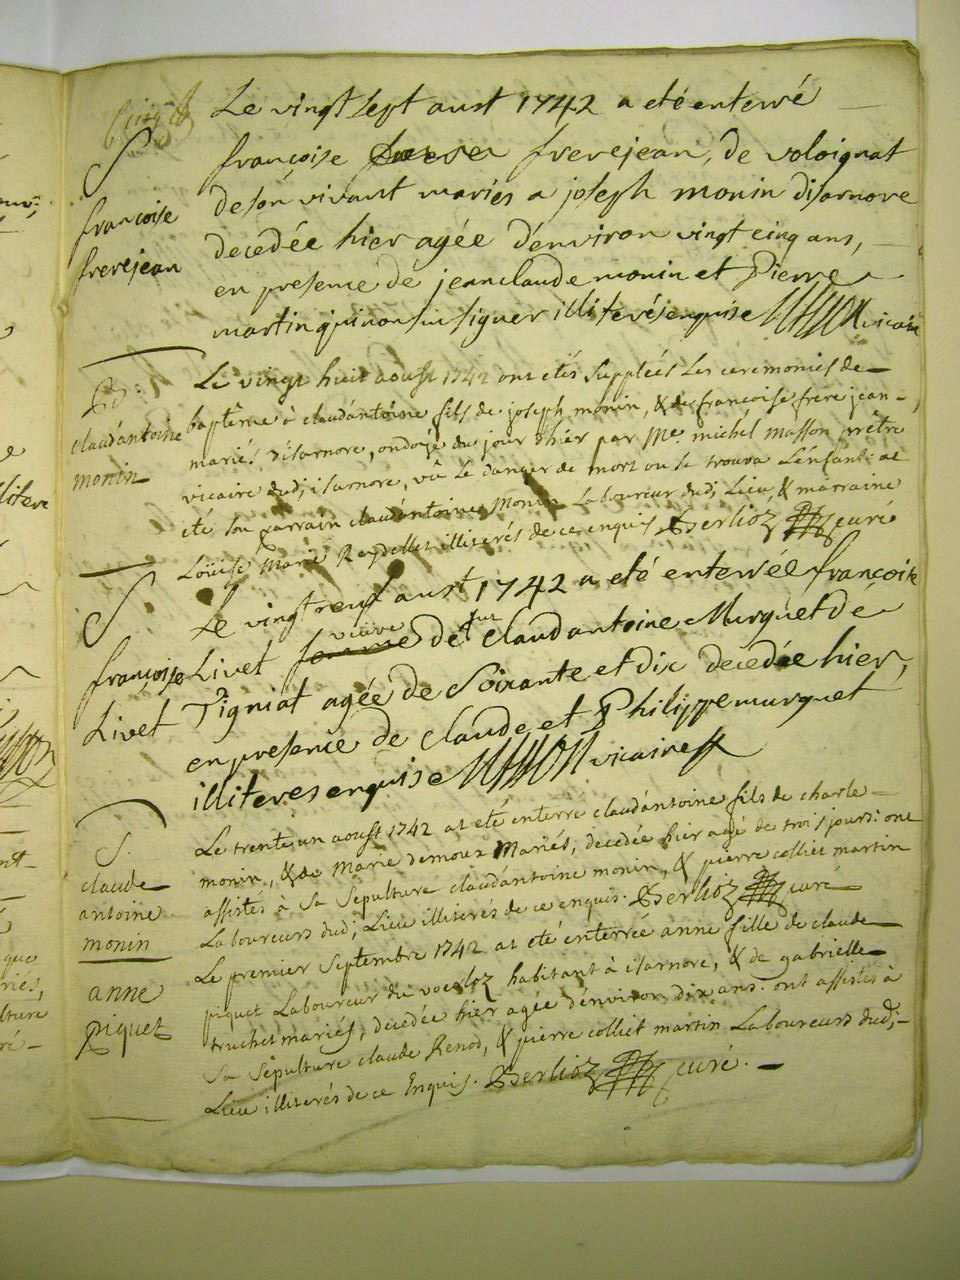 S
françoise
frerejean
Le vingt sept aust 1742 a eté enterré
françoise frerejean, de voloignat
de son vivant mariés a joseph monin disarnore
decedée hier agée d'environ vingt cinq ans,
en presence dé jeanclaude monin et Pierre
martin qui non sçu signer illiterés enquise Masson vicaire
B:
claudantoine
monin
Le vingt huit aoust 1742 ont etés suppléés Les ceremonies de
baptême à claudantoine fils de joseph monin, & de francoise frere jean
mariés d'isarnore, ondoyé du jour d'hier par Me. michel masson prêtre
vicaire dudj isarnore, vû Le danger de mort ou se trouva L'enfant: at
eté son parrain claudantoine Monin Laboureur dudj Lieu, & marraine
Loüise Marie Reydellet illiterés de ce enquis Berlioz curé
S
françoise
Livet
Le vingt neuf aust 1742 a eté enterrée françoise
Livet femme veuve de fut claudantoine Murquet dé
Tigniat agée de Soixante et dix decedée hier,
en presence de claude et Philippe murquet
illiteres enquise Masson vicaire
S.
claude
antoine
monin
Le trente un aoust 1742 at eté enterré claudantoine fils de charle
monin, & de Marie demoux Mariés, decedée hier agé de trois jours: ont
assistés à Sa Sepulture claudantoine monin, & pierre colliet martin
Laboureurs dudj Lieu illiterés de ce enquis. Berlioz curé
anne
piquet
Le premier Septembre 1742 at eté enterrée anne fille de claude
piquet Laboureur du habitant à isarnore, & de gabrielle
truchet mariés, decedée hier agée d'environ dix ans. ont assistés à
Sa Sepulture claude Renod, & pierre colliet martin Laboureurs dudj
Lieu illiterés de ce Enquis. Berlioz curé.